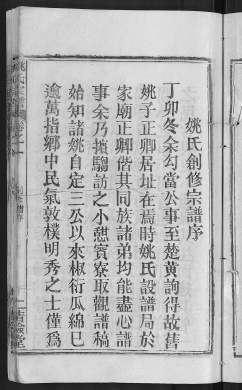 姚氏創修宗譜序
丁卯冬余勾當公事至楚黃詢得故舊
姚子正卿居址在焉時姚氏設譜局於
家廟正卿偕其同族諸弟均能盡心譜
事余乃摭騶訪之小憇賓寮取觀譜稿
始知諸姚自定三公以來椒衍瓜綿已
逾萬指鄉中民氣敦樸明秀之士僅爲